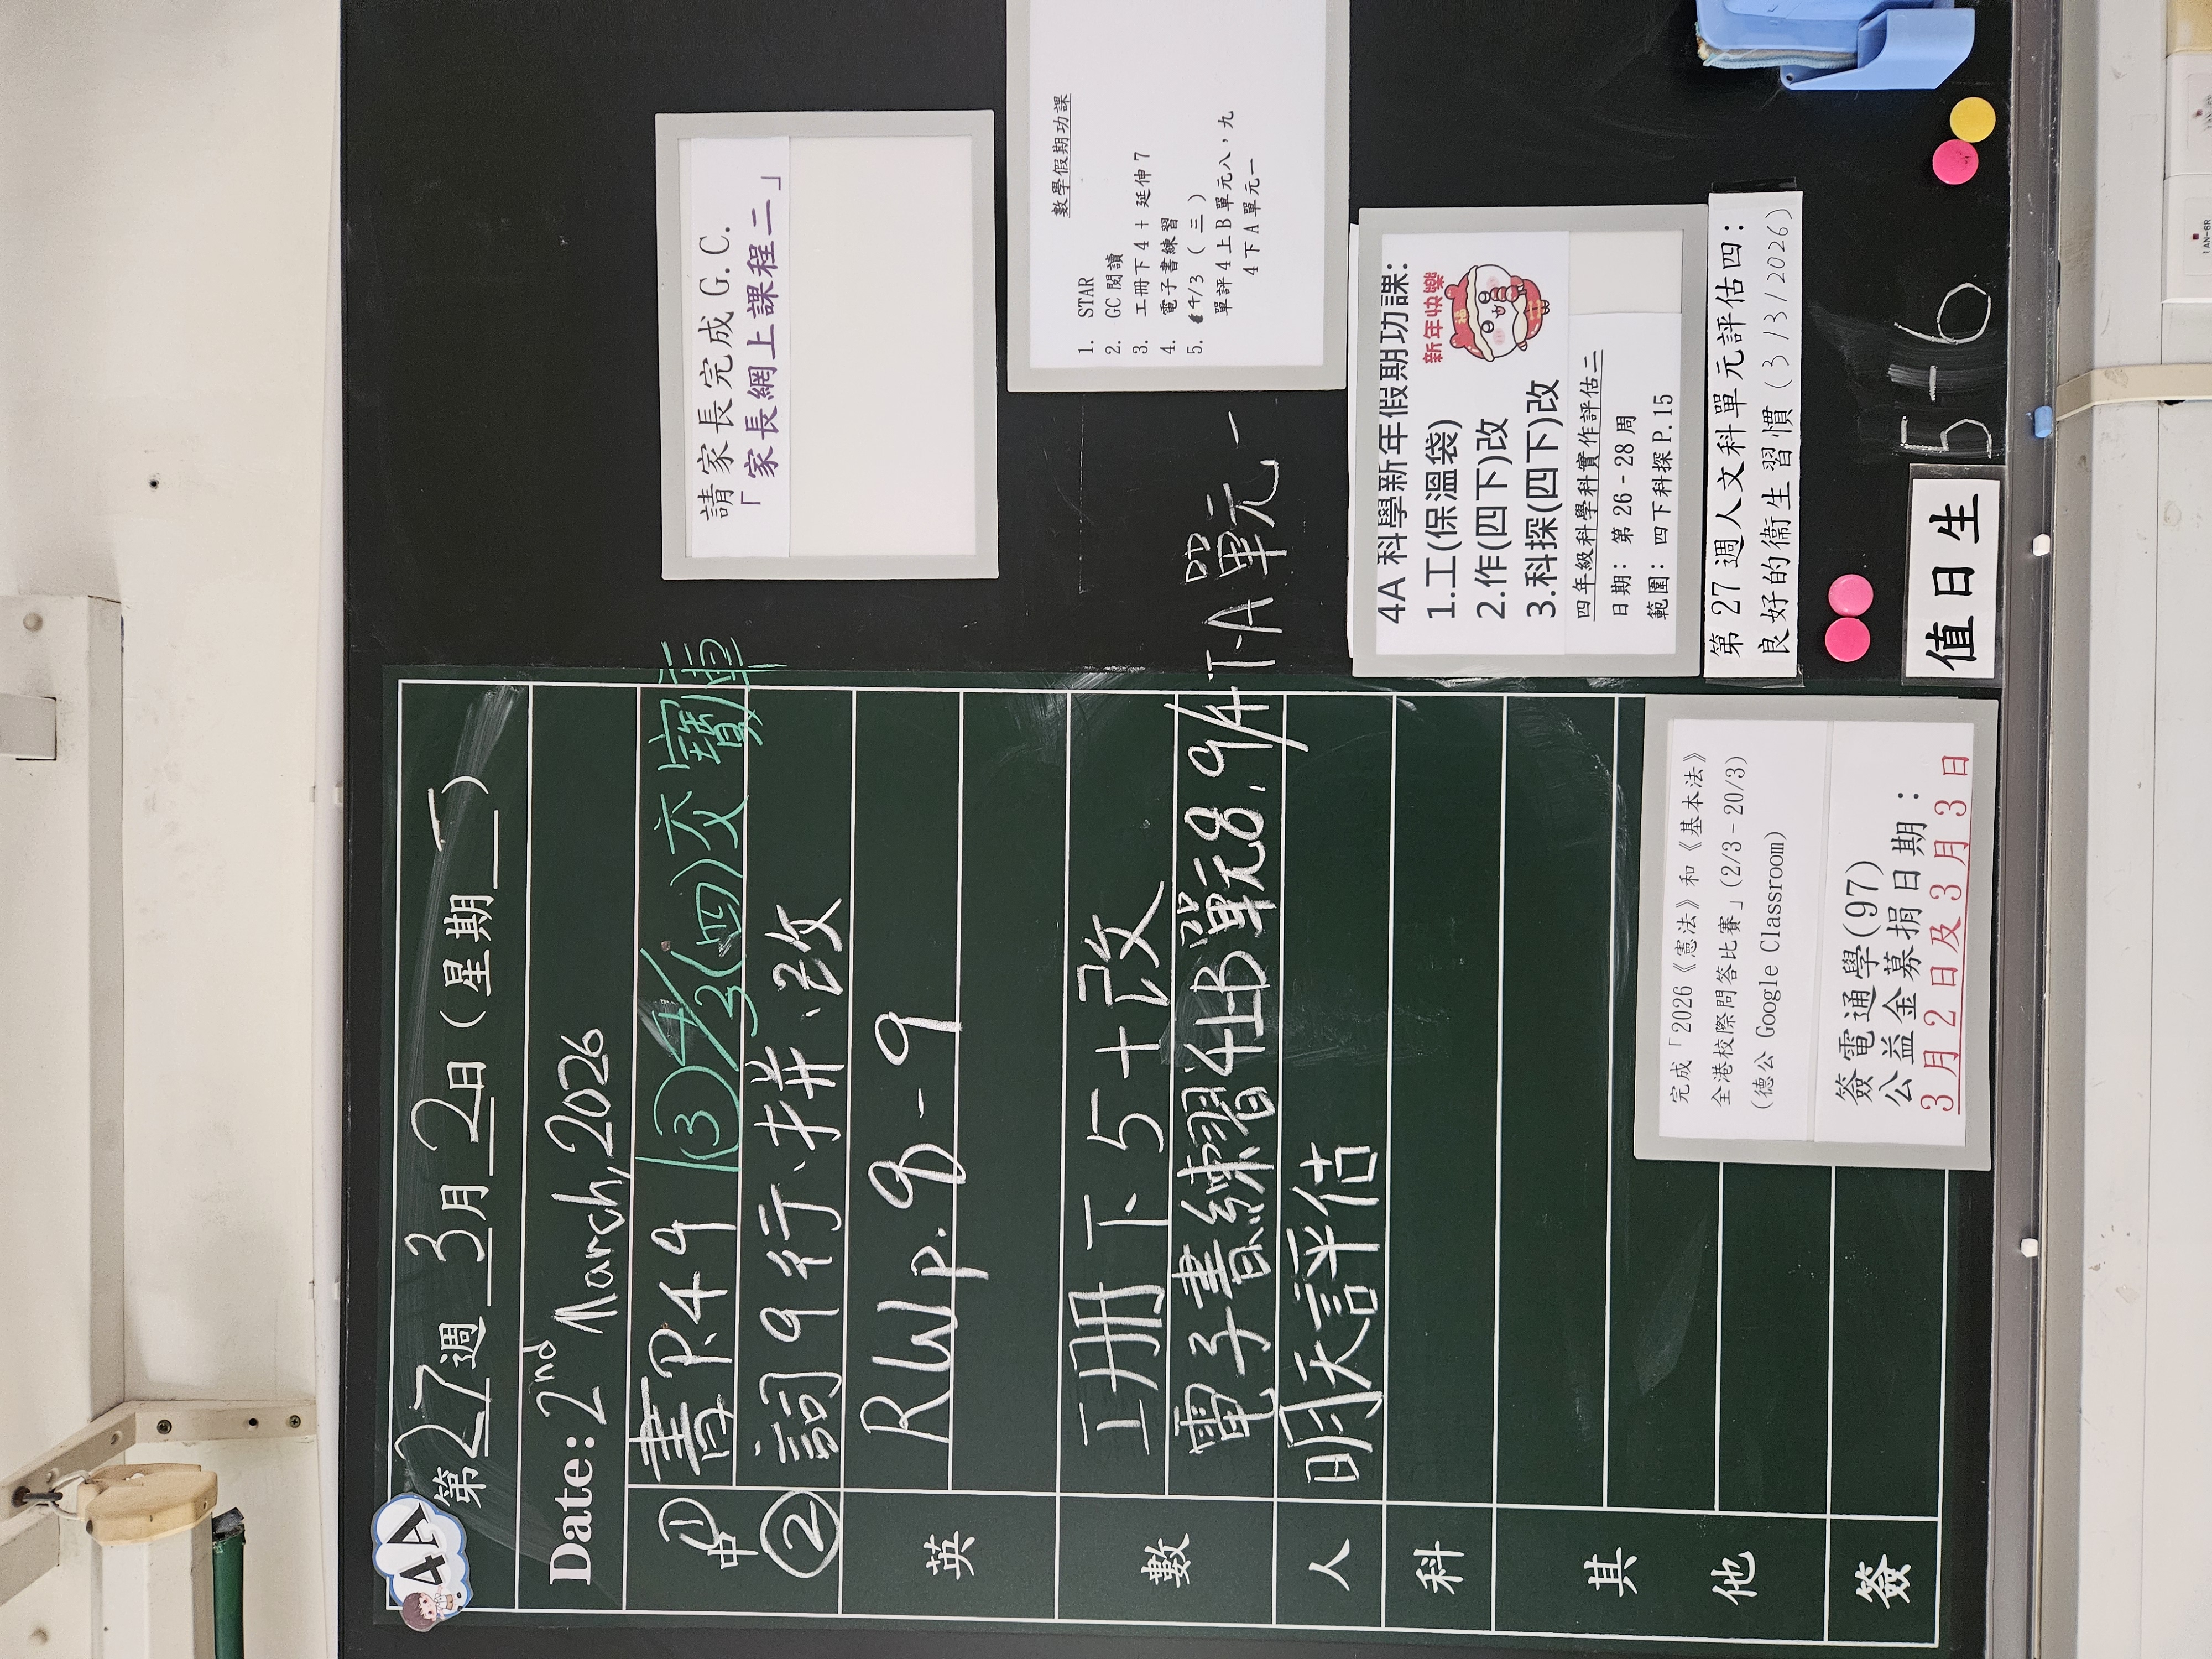 4A
第27週3月2日(星期一)
Date: 2nd March, 2026
中 ① 書P.49 ③ 4/3(四)交寶庫
② 詞9行、拼、改
英 RWp.8-9
數 工冊下5+改
電子書練習4上B單元8,9/4下A單元一
人 明天評估
科
其他
簽
完成「2026《憲法》和《基本法》
全港校際問答比賽」(2/3-20/3)
(德公 Google Classroom)
簽電通學(97)
公益金募捐日期:
3月2日及3月3日
請家長完成G.C.
「家長網上課程二」
數學假期功課
1. STAR
2. GC閱讀
3. 工冊下4+延伸7
4. 電子書練習
5. 4/3(三)
單評4上B單元八,九
4下A單元一
4A科學新年假期功課:
1.工(保溫袋)
2.作(四下)改
3.科探(四下)改
新年快樂
福
四年級科學科實作評估二
日期:第26-28周
範圍:四下科探P.15
第27週人文科單元評估四:
良好的衞生習慣(3/3/2026)
值日生 5-6
1AN-6R